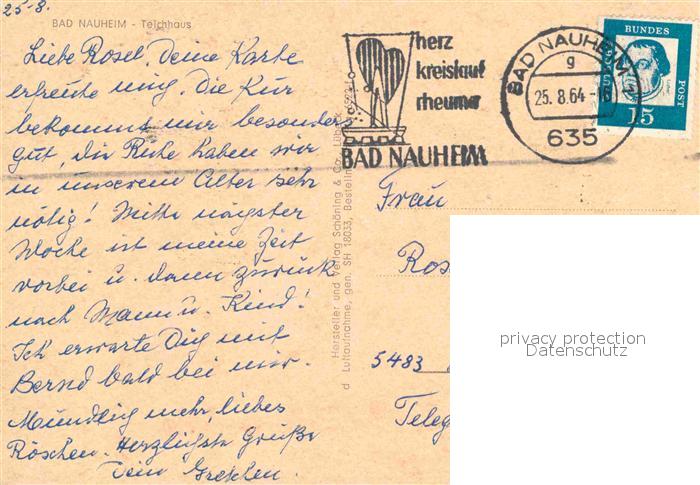 25-8.
BAD NAUHEIM - Teichhaus
Liebe Rosel, Deine Karte
erfreute mig. Die Kur
bekommt mir besonders
gut, die Ruhe haben wir
in unserem Alter sehr
nötig! Mitte nägster
Woche ist meine Zeit
vorbei u. dann zurück
nach Mann u. Kind!
Ich erwarte Dig mit
Bernd bald bei mir.
Mündlig mehr, liebes
Röschen. Herzligste Grüße
Dein Gretchen.
herz
kreislauf
rheuma
BAD NAUHEIM
BAD NAUHEIM
g
25. 8. 64
635
BUNDES
POST
15
Hersteller und Verlag Schöning & Co., Lübeck
Luftaufnahme, gen. SH 18033, Bestelln
Frau
Ros
5483
Teleg
privacy protection
Datenschutz